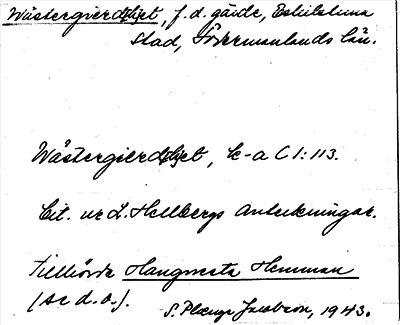 Wästergierdhet, f.d. gärde, Eskilstuna
Stad, Södermanlands län.
Wästergierdhet, k-a C 1:113.
Cit. ur L. Hellbergs Anteckningar.
Tillhörde Hemman
(se d.o.).
S. Jacobson, 1943.